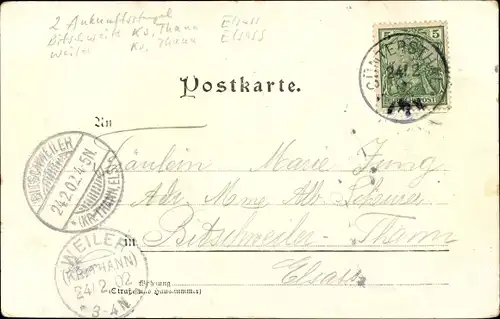 2 Ankunftsstempel Elsass
Bitschweiler Kr. Thann Elsass
Weiler Kr. Thann
5 5
GÜNTERSTAL
24/2
Postkarte.
An
Fräulein Marie Jung
Adr. Mme Alb.
in Bitschweiler-Thann
Elsass
BITSCHWEILER
24.2.02.4-5N.
(KR. THANN, ELS.)
WEILER
(KR. THANN)
24/2 02
3-4N
Wohnung
(Straße und Hausnummer)